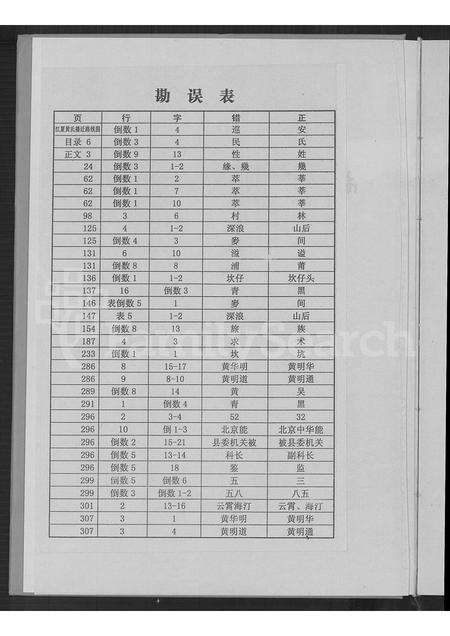 勘误表
页 行 字 错 正
江夏黄氏播迁路线图 倒数1 4 迎 安
目录 6 倒数3 4 民 氏
正文 3 倒数9 13 性 姓
24 倒数3 1-2 缘、幾 幾
62 倒数1 2 萃 莘
62 倒数1 7 萃 莘
62 倒数1 10 萃 莘
98 3 6 村 林
125 4 1-2 深浪 山后
125 倒数4 3 麥 间
131 6 10 溢 谥
131 倒数8 8 浦 莆
136 倒数1 1-2 坎仔 坎仔头
137 16 倒数3 青 黑
146 表倒数5 1 麥 间
147 表5 1-2 深浪 山后
154 倒数8 13 旅 族
187 4 3 求 术
233 倒数1 1 坎 坑
286 8 15-17 黄华明 黄明华
286 9 8-10 黄明道 黄明通
289 倒数8 14 黄 吴
291 1 倒数4 青 黑
296 2 3-4 52 32
296 10 倒1-3 北京能 北京中华能
296 倒数2 15-21 县委机关被 被县委机关
296 倒数5 13-14 科长 副科长
296 倒数5 18 鉴 监
299 倒数5 倒数6 五 三
299 倒数3 倒数1-2 五八 八五
301 2 13-16 云霄海汀 云霄、海汀
307 3 1 黄华明 黄明华
307 3 4 黄明道 黄明通
FamilySearch